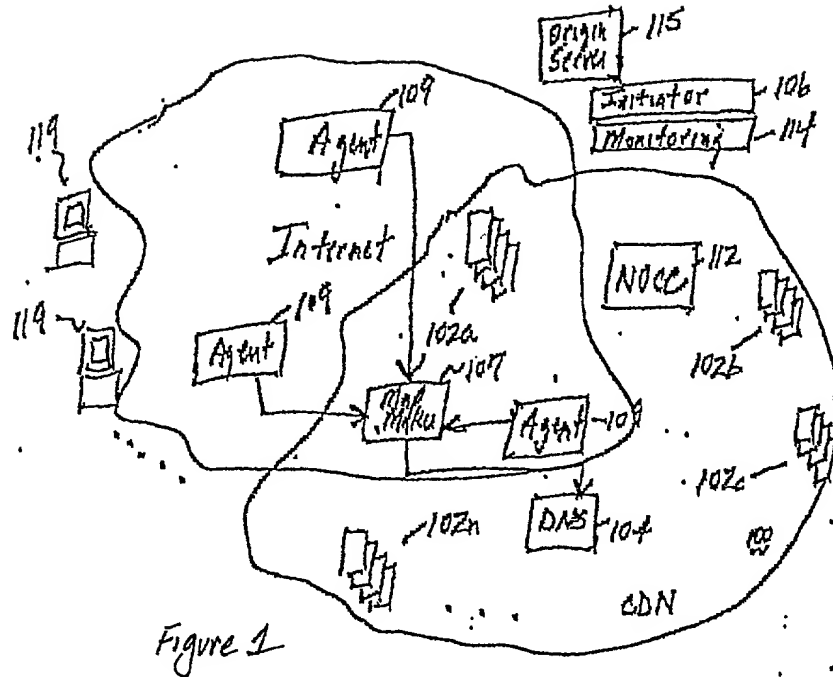 Origin
Server
115
Initiator
106
Monitoring
114
109
Agent
119
Internet
NOCC
112
102a
102b
109
Agent
119
107
Map
Maker
Agent
109
102c
DNS
104
102n
100
CDN
Figure 1